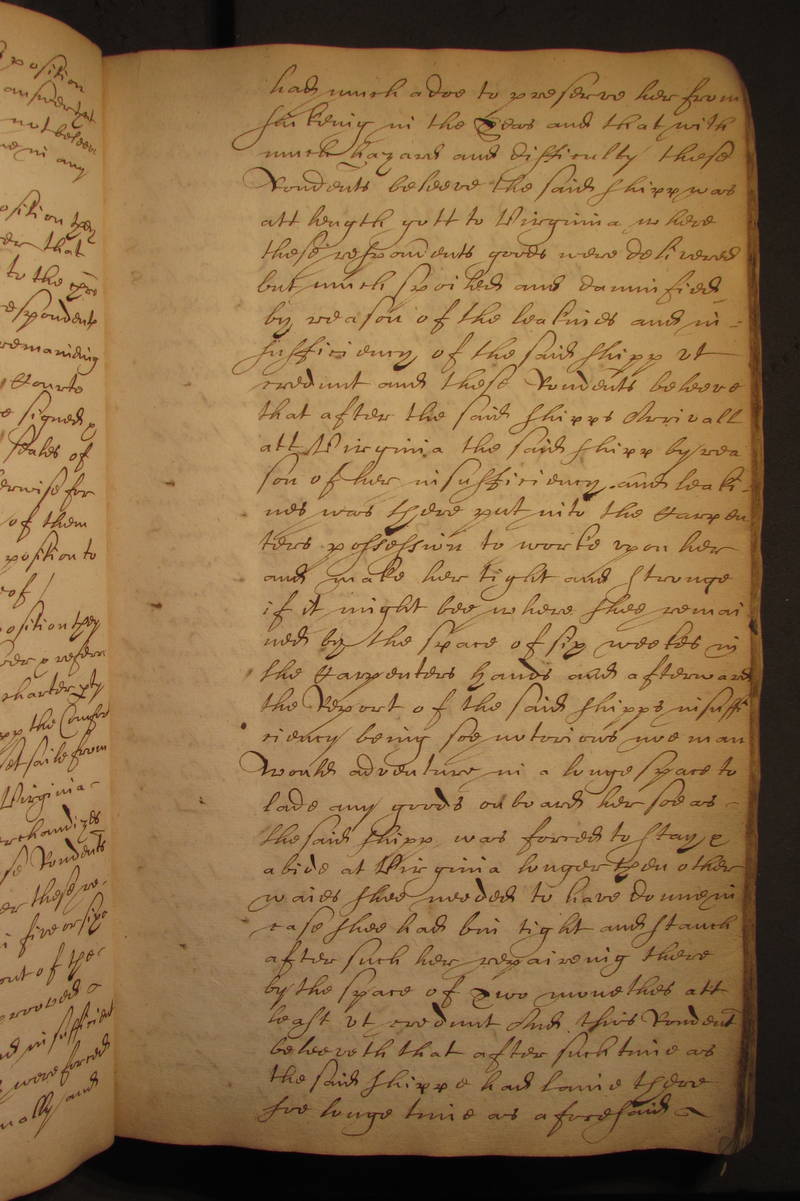 position
answer that
not beleeve
in any
position they
er that
to the
respondents
remaininge
Courte
signed
seales of
erwise for
of them
position to
eof /
position they
charter pty
pp the
set saile from
Virginia
erchandizes
se Rondents
er these re-
five or sixe
out of the
prooved
nd insufficient
were forced
nally and
had much adoe to preserve her from
sinkeing in the Seas and that with
much hazard and difficulty these
Rondents beleeve the said shipp was
att length gott to Virginia where
these respondents goods were delivered
but much spoiled and damnified
by reason of the leakines and in=
sufficiency of the said shipp vt
credunt and these Rondents beleeve
that after the said shipps Arrivall
att Virginia the said shipp by rea
son of her insufficiency and leaki-
nes was there put into the Carpen
ters possession to worke vpon her
and make her tight and stronge
if it might bee where shee remai
ned by the space of six weekes in
the Carpenters hands and afterward
the Report of the said shipps insuffi
ciency being soe notorious noe man
Would adventure in a longe space to
lade any goods on board her soe as -
the said shipp was forced to stay &
abide at Virginia longer then other
waies shee needed to have donne in
case shee had bin tight and stanch
after such her repaireing there
by the space of Two monethes att
least vt credunt And this Rondent
beleeveth that after such time as
the said shippe had laine there
soe longe time as aforesaid